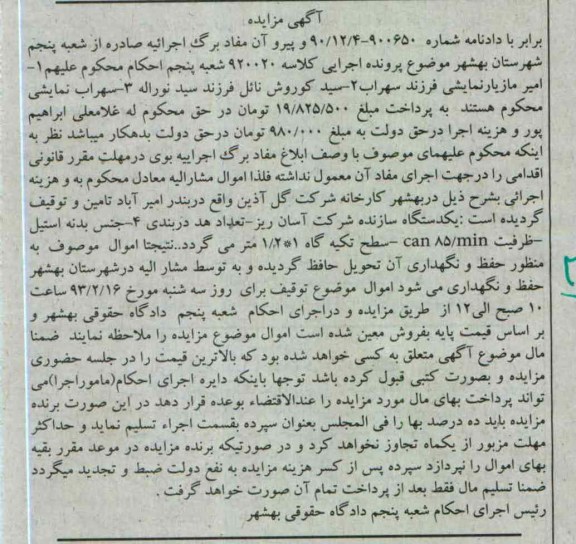 آگهی مزایده
برابر با دادنامه شماره ۹۰۰۶۵۰-۹۰/۱۲/۴ و پیرو آن مفاد برگ اجرائیه صادره از شعبه پنجم
شهرستان بهشهر موضوع پرونده اجرایی کلاسه ۹۲۰۰۲۰ شعبه پنجم احکام محکوم علیهم۱-
امیر مازیارنمایشی فرزند سهراب۲-سید کوروش نائل فرزند سید نوراله ۳-سهراب نمایشی
محکوم هستند به پرداخت مبلغ ۱۹/۸۲۵/۵۰۰ تومان در حق محکوم له غلامعلی ابراهیم
پور و هزینه اجرا درحق دولت به مبلغ ۹۸۰/۰۰۰ تومان درحق دولت بدهکار میباشد نظر به
اینکه محکوم علیهمای موصوف با وصف ابلاغ مفاد برگ اجراییه بوی درمهلت مقرر قانونی
اقدامی را درجهت اجرای مفاد آن معمول نداشته فلذا اموال مشارالیه معادل محکوم به و هزینه
اجرائی بشرح ذیل دربهشهر کارخانه شرکت گل آذین واقع دربندر امیر آباد تامین و توقیف
گردیده است :یکدستگاه سازنده شرکت آسان ریز-تعداد هد دربندی ۴-جنس بدنه استیل
-ظرفیت can ۸۵/min -سطح تکیه گاه ۱*۱/۲ متر می گردد..نتیجتا اموال موصوف به
منظور حفظ و نگهداری آن تحویل حافظ گردیده و به توسط مشار الیه درشهرستان بهشهر
حفظ و نگهداری می شود اموال موضوع توقیف برای روز سه شنبه مورخ ۹۳/۲/۱۶ ساعت
۱۰ صبح الی۱۲ از طریق مزایده و دراجرای احکام شعبه پنجم دادگاه حقوقی بهشهر و
بر اساس قیمت پایه بفروش معین شده است اموال موضوع مزایده را ملاحظه نمایند ضمنا
مال موضوع آگهی متعلق به کسی خواهد شده بود که بالاترین قیمت را در جلسه حضوری
مزایده و بصورت کتبی قبول کرده باشد توجها باینکه دایره اجرای احکام(ماموراجرا)می
تواند پرداخت بهای مال مورد مزایده را عندالاقتضاء بوعده قرار دهد در این صورت برنده
مزایده باید ده درصد بها را فی المجلس بعنوان سپرده بقسمت اجراء تسلیم نماید و حداکثر
مهلت مزبور از یکماه تجاوز نخواهد کرد و در صورتیکه برنده مزایده در موعد مقرر بقیه
بهای اموال را نپردازد سپرده پس از کسر هزینه مزایده به نفع دولت ضبط و تجدید میگردد
ضمنا تسلیم مال فقط بعد از پرداخت تمام آن صورت خواهد گرفت .
رئیس اجرای احکام شعبه پنجم دادگاه حقوقی بهشهر